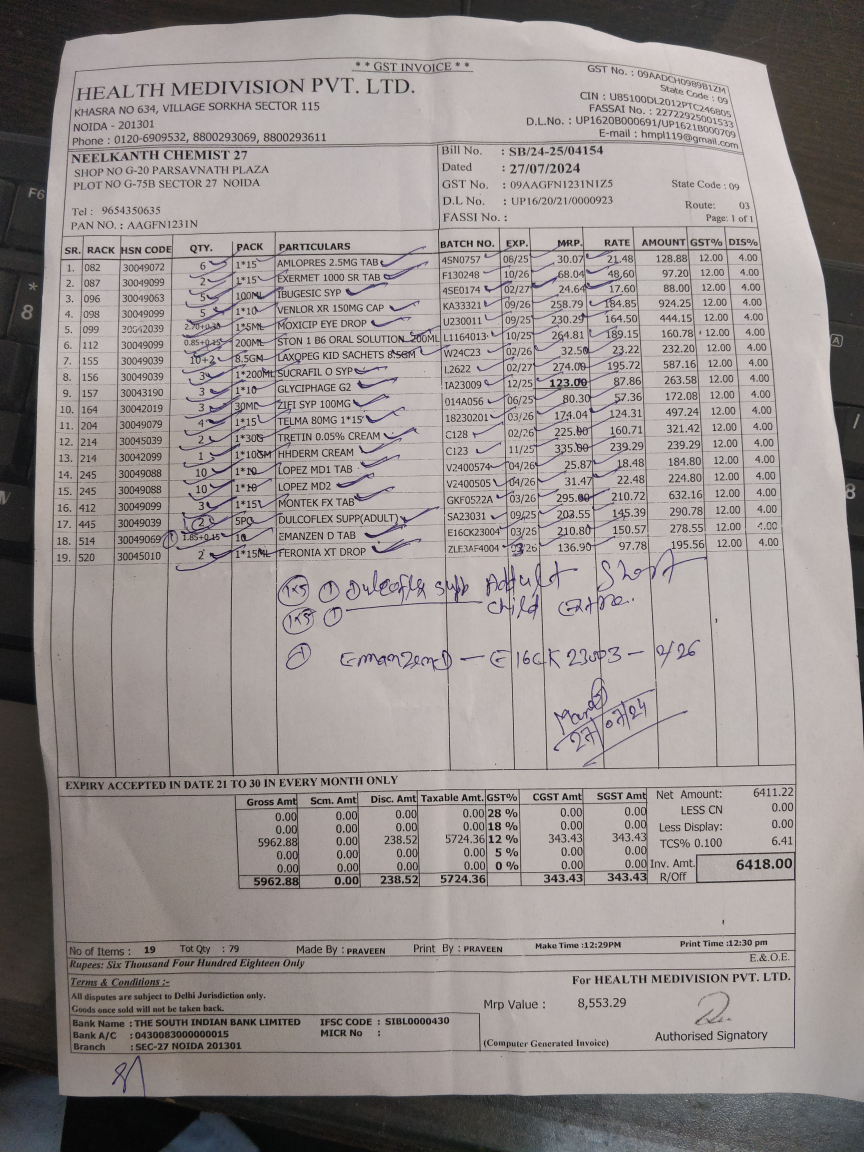 * * GST INVOICE * *
HEALTH MEDIVISION PVT. LTD.
KHASRA NO 634, VILLAGE SORKHA SECTOR 115
NOIDA - 201301
Phone : 0120-6909532, 8800293069, 8800293611
GST No. : 09AADCH0989B1ZM
State Code : 09
CIN : U85100DL2012PTC246805
FASSAI No. : 22722925001533
D.L.No. : UP1620B000691/UP1621B000709
E-mail : hmpl119@gmail.com
NEELKANTH CHEMIST 27
SHOP NO G-20 PARSAVNATH PLAZA
PLOT NO G-75B SECTOR 27 NOIDA
Tel : 9654350635
PAN NO. : AAGFN1231N
Bill No. : SB/24-25/04154
Dated : 27/07/2024
GST No. : 09AAGFN1231N1Z5 State Code : 09
D.L No. : UP16/20/21/0000923 Route: 03
FASSI No. : Page: 1 of 1
SR. RACK HSN CODE QTY. PACK PARTICULARS BATCH NO. EXP. MRP. RATE AMOUNT GST% DIS%
1. 082 30049072 6 1*15 AMLOPRES 2.5MG TAB 4SN0757 08/25 30.07 21.48 128.88 12.00 4.00
2. 087 30049099 2 1*15 EXERMET 1000 SR TAB F130248 10/26 68.04 48.60 97.20 12.00 4.00
3. 096 30049063 5 100ML IBUGESIC SYP 4SE0174 02/27 24.64 17.60 88.00 12.00 4.00
4. 098 30049099 5 1*10 VENLOR XR 150MG CAP KA33321 09/26 258.79 184.85 924.25 12.00 4.00
5. 099 30042039 2.70+0.30 1*5ML MOXICIP EYE DROP U230011 09/25 230.29 164.50 444.15 12.00 4.00
6. 112 30049099 0.85+0.15 200ML STON 1 B6 ORAL SOLUTION 200ML L1164013 10/25 264.81 189.15 160.78 12.00 4.00
7. 155 30049039 10+2 8.5GM LAXOPEG KID SACHETS 8.5GM W24C23 02/26 32.50 23.22 232.20 12.00 4.00
8. 156 30049039 3 1*200ML SUCRAFIL O SYP L2622 02/27 274.00 195.72 587.16 12.00 4.00
9. 157 30043190 3 1*10 GLYCIPHAGE G2 IA23009 12/25 123.00 87.86 263.58 12.00 4.00
10. 164 30042019 3 30ML ZIFI SYP 100MG 014A056 06/25 80.30 57.36 172.08 12.00 4.00
11. 204 30049079 4 1*15 TELMA 80MG 1*15 18230201 03/26 174.04 124.31 497.24 12.00 4.00
12. 214 30045039 2 1*30G TRETIN 0.05% CREAM C128 02/26 225.00 160.71 321.42 12.00 4.00
13. 214 30042099 1 1*10GM HHDERM CREAM C123 11/25 335.00 239.29 239.29 12.00 4.00
14. 245 30049088 10 1*10 LOPEZ MD1 TAB V2400574 04/26 25.87 18.48 184.80 12.00 4.00
15. 245 30049088 10 1*10 LOPEZ MD2 V2400505 04/26 31.47 22.48 224.80 12.00 4.00
16. 412 30049099 3 1*15 MONTEK FX TAB GKF0522A 03/26 295.00 210.72 632.16 12.00 4.00
17. 445 30049039 2 5PC DULCOFLEX SUPP(ADULT) SA23031 09/25 203.55 145.39 290.78 12.00 4.00
18. 514 30049069 1.85+0.15 10 EMANZEN D TAB E16CK23004 03/26 210.80 150.57 278.55 12.00 4.00
19. 520 30045010 2 1*15ML FERONIA XT DROP ZLE3AF4004 03/26 136.90 97.78 195.56 12.00 4.00
1x5 1 Dulcoflex supp Adult Short
1x5 1 child extra.
1 EmanzenD - E16CK23003 - 2/26
27/07/24
EXPIRY ACCEPTED IN DATE 21 TO 30 IN EVERY MONTH ONLY
Gross Amt Scm. Amt Disc. Amt Taxable Amt. GST% CGST Amt SGST Amt
0.00 0.00 0.00 0.00 28 % 0.00 0.00
0.00 0.00 0.00 0.00 18 % 0.00 0.00
5962.88 0.00 238.52 5724.36 12 % 343.43 343.43
0.00 0.00 0.00 0.00 5 % 0.00 0.00
0.00 0.00 0.00 0.00 0 % 0.00 0.00
5962.88 0.00 238.52 5724.36 343.43 343.43
Net Amount: 6411.22
LESS CN 0.00
Less Display: 0.00
TCS% 0.100 6.41
Inv. Amt. 6418.00
R/Off
No of Items : 19 Tot Qty : 79 Made By : PRAVEEN Print By : PRAVEEN Make Time :12:29PM Print Time :12:30 pm
Rupees: Six Thousand Four Hundred Eighteen Only E.&.O.E.
Terms & Conditions :-
All disputes are subject to Delhi Jurisdiction only.
Goods once sold will not be taken back.
Bank Name : THE SOUTH INDIAN BANK LIMITED IFSC CODE : SIBL0000430
Bank A/C : 0430083000000015 MICR No :
Branch : SEC-27 NOIDA 201301
For HEALTH MEDIVISION PVT. LTD.
Mrp Value : 8,553.29
Authorised Signatory
(Computer Generated Invoice)